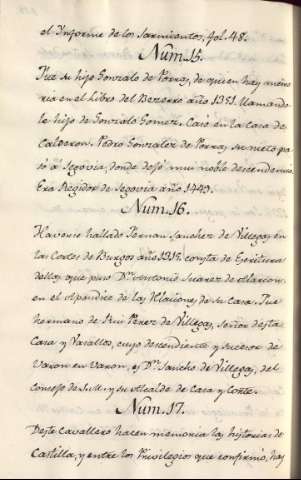 el Informe de los Sarmientos, fol. 48.
Num. 15.
Fue su hijo Gonzalo de Porras, de quien hay memo
ria en el Libro del Bezerro año 1351. llamando
le hijo de Gonzalo Gomez. Casó en la Casa de
Calderon. Pedro Gonzalez de Porras, su nieto pa
só a Segovia, donde dejó muy noble descendencia.
Era Regidor de Segovia año 1449.
Num. 16.
Haverse hallado Fernan Sanchez de Villegas en
las Cortes de Burgos año 1315. consta de Escritura
dellas, que puso Dn. Antonio Suarez de Alarcon,
en el Apendice de las Relaciones de su Casa. Fue
hermano de Rui Perez de Villegas, Señor desta
Casa y Vasallos, cuyo descendiente y sucesor de
Varon en Varon, es Dn. Sancho de Villegas, del
Consejo de S.M. y su Alcalde de Casa y Corte.
Num. 17.
Deste Cavallero hacen memoria las historias de
Castilla, y entre los Privilegios que confirmó, hay